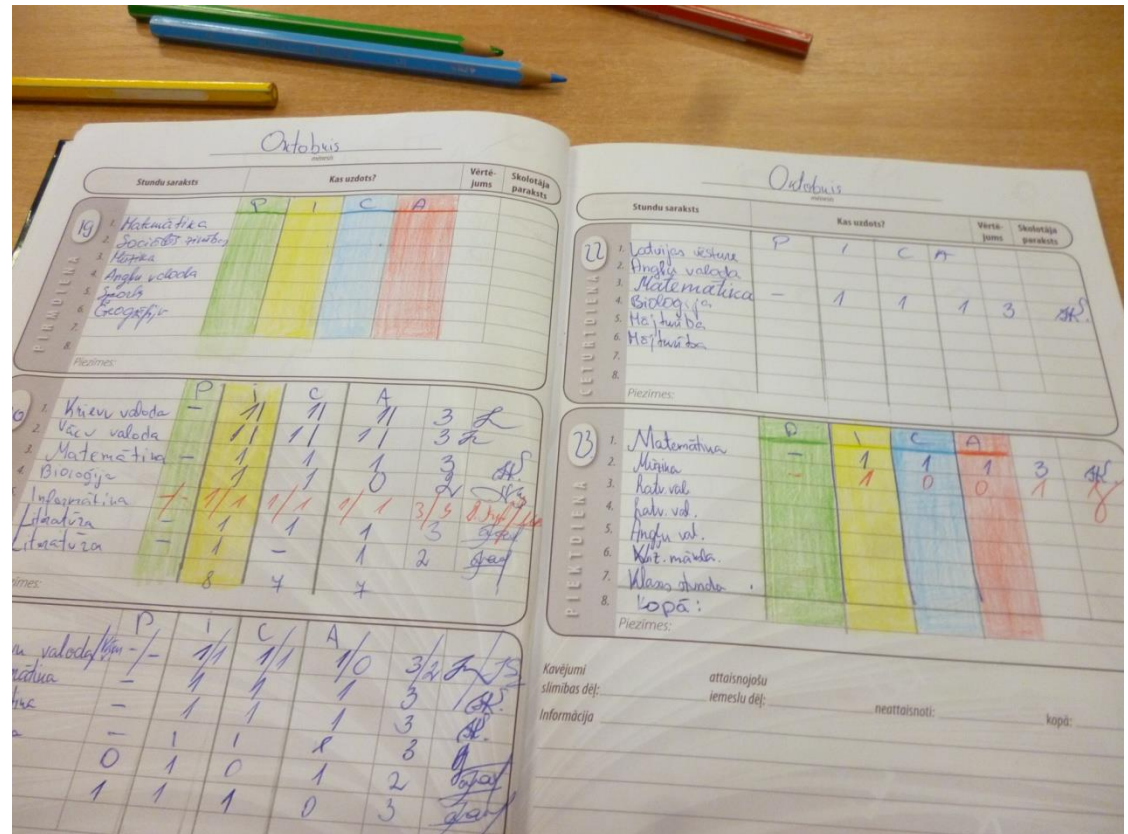 Oktobris
mēnesis
Stundu saraksts Kas uzdots? Vērtē-jums Skolotāja paraksts
19 PIRMDIENA
P I C A
1. Matemātika
2. Sociālās zinības
3. Mūzika
4. Angļu valoda
5. Sports
6. Ģeogrāfija
7.
8.
Piezīmes:
P i C A
1. Krievu valoda - 1/ 1/ 1/ 3
2. Vācu valoda 1/ 1/ 1/ 3
3. Matemātika - 1 1 1 3
4. Bioloģija 1 1 0 2
Informātika -/- 1/1 1/1 1/1 3/3
Literatūra - 1 1 1 3
Literatūra - 1 - 1 2
8 7 7
zīmes:
P i C A
valoda/Vācu -/- 1/1 1/1 1/0 3/2
mātika - 1 1 1 3
- 1 1 1 3
- 1 1 3
0 1 0 1 2
1 1 1 0 3
Oktobris
mēnesis
Stundu saraksts Kas uzdots? Vērtē-jums Skolotāja paraksts
22 CETURTDIENA
P I C A
1. Latvijas vēsture
2. Angļu valoda
3. Matemātika - 1 1 1 3
4. Bioloģija
5. Mājturība
6. Mājturība
7.
8.
Piezīmes:
23. PIEKTDIENA
P I C A
1. Matemātika - 1 1 1 3
2. Mūzika - 1 0 0 1
3. Latv. val.
4. Latv. val.
5. Angļu val.
6. Viz. māksla.
7. Klases stunda.
8. Kopā:
Piezīmes:
Kavējumi
slimības dēļ: attaisnojošu iemeslu dēļ: neattaisnoti: kopā:
Informācija